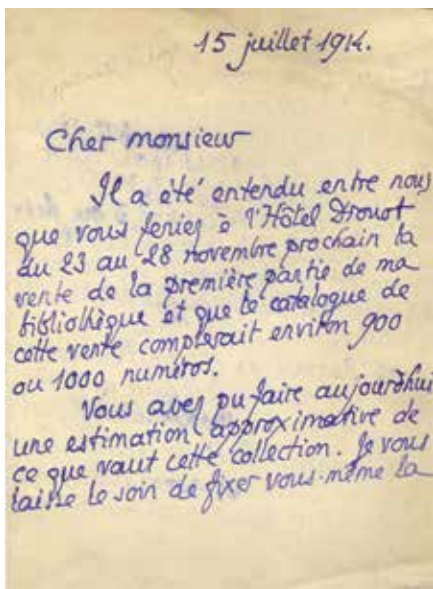 15 juillet 1914.
Cher monsieur
Il a été entendu entre nous
que vous feriez à l'Hôtel Drouot
du 23 au 28 novembre prochain la
vente de la première partie de ma
bibliothèque et que le catalogue de
cette vente compterait environ 900
ou 1000 numéros.
Vous avez pu faire aujourd'hui
une estimation approximative de
ce que vaut cette collection. Je vous
laisse le soin de fixer vous-même la